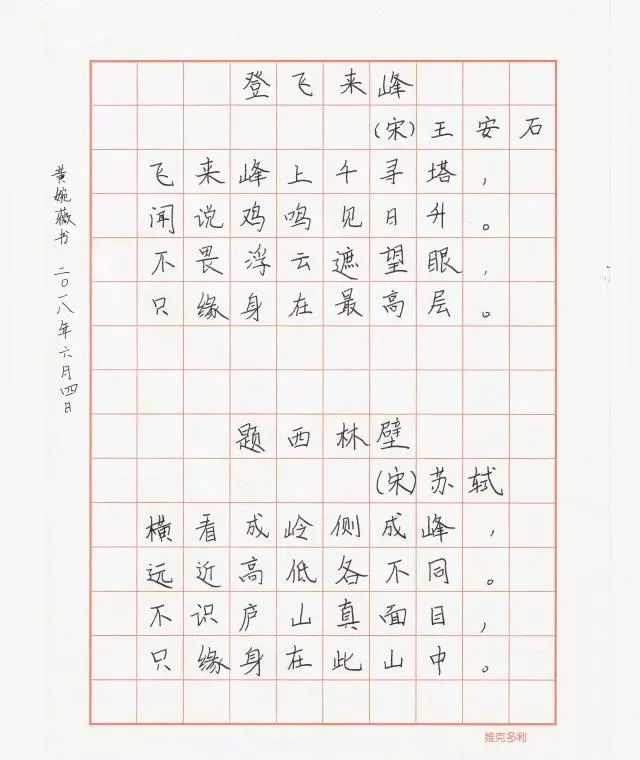 登飞来峰
(宋)王安石
飞来峰上千寻塔，
闻说鸡鸣见日升。
不畏浮云遮望眼，
只缘身在最高层。
题西林壁
(宋)苏轼
横看成岭侧成峰，
远近高低各不同。
不识庐山真面目，
只缘身在此山中。
黄婉薇书 二〇一八年六月四日
维克多利